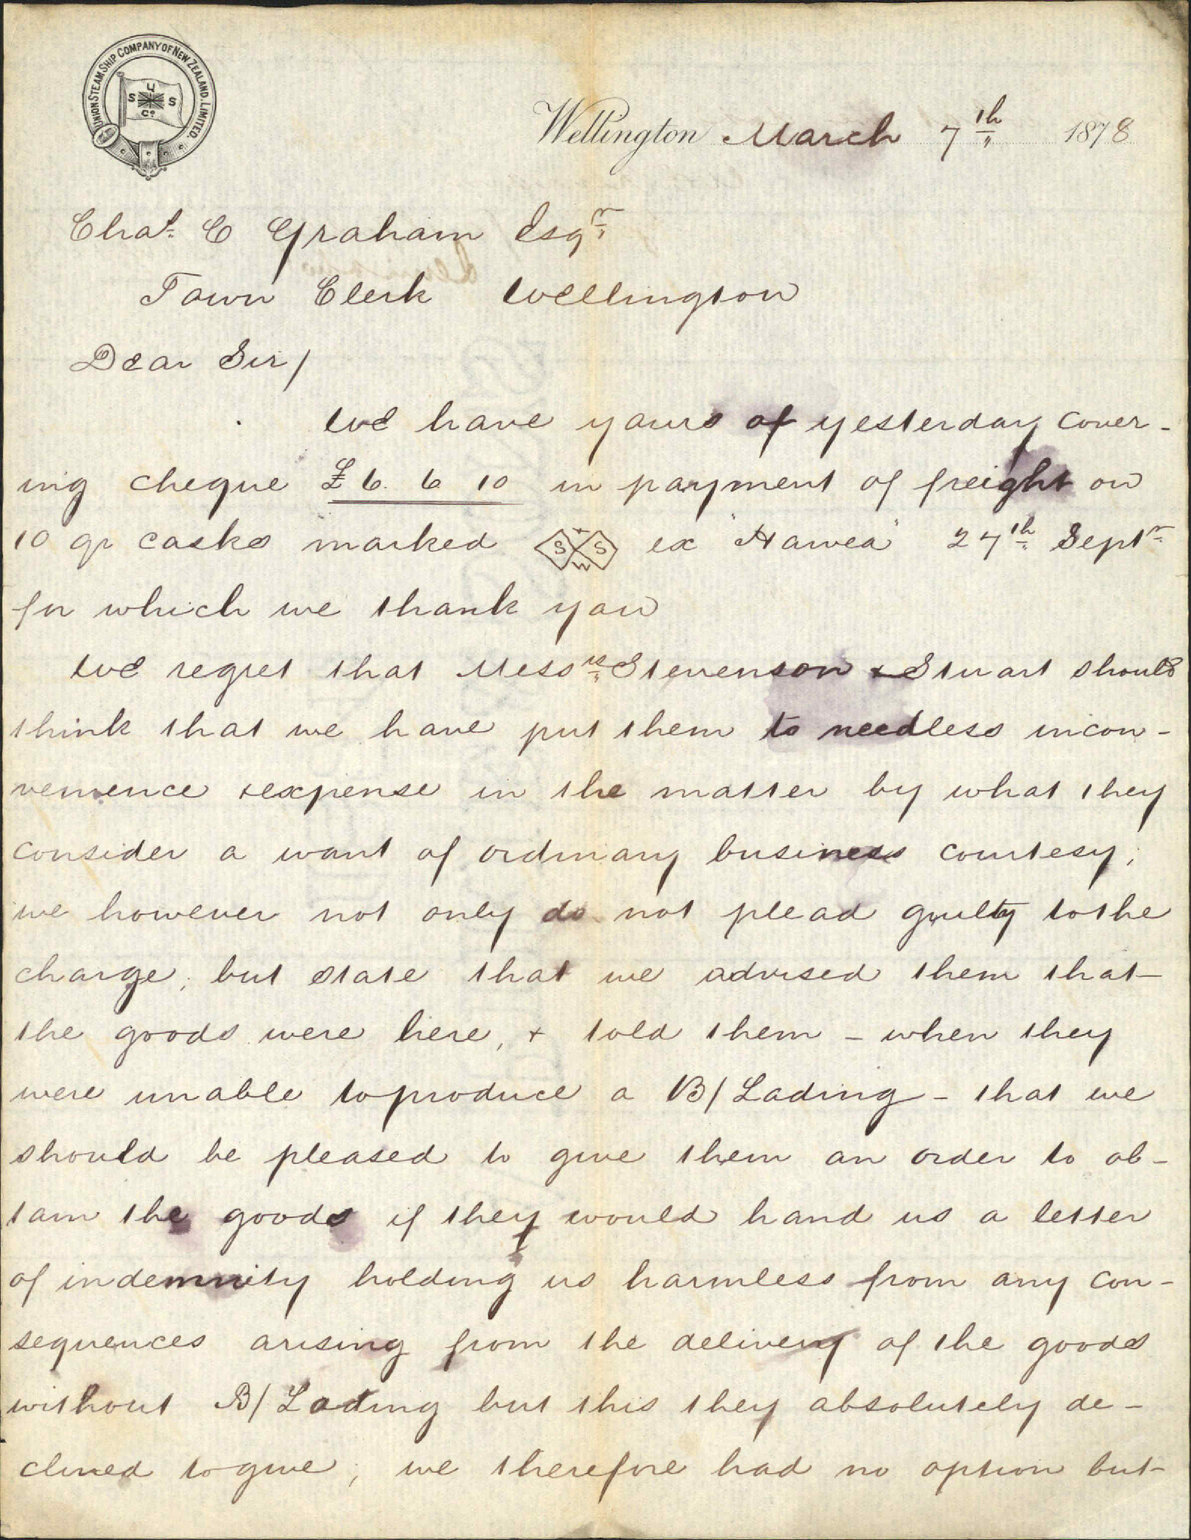 UNION STEAM SHIP COMPANY OF NEW ZEALAND. LIMITED
U
S S
Co
Wellington March 7th 1878
Chas. C Graham Esqr
Town Clerk Wellington
Dear Sir/
We have yours of yesterday cover-
ing cheque £6. 6 10 in payment of freight on
10 qr casks marked S S W ex "Hawea" 27th Septr
for which we thank you
We regret that Messrs Stevenson & Stuart should
think that we have put them to needless incon-
venience & expense in the matter by what they
consider a want of ordinary business courtesy;
we however not only do not plead guilty to the
charge, but state that we advised them that
the goods were here, & told them - when they
were unable to produce a B/Lading - that we
should be pleased to give them an order to ob-
tain the goods if they would hand us a letter
of indemnity holding us harmless from any con-
sequences arising from the delivery of the goods
without B/Lading but this they absolutely de-
clined to give; we therefore had no option but